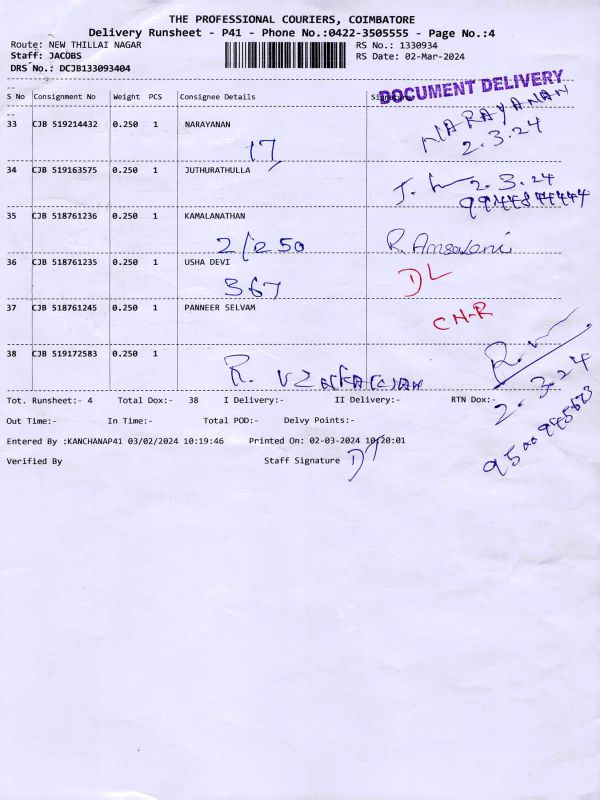 THE PROFESSIONAL COURIERS, COIMBATORE
Delivery Runsheet - P41 - Phone No.:0422-3505555 - Page No.:4
Route: NEW THILLAI NAGAR RS No.: 1330934
Staff: JACOBS RS Date: 02-Mar-2024
DRS No.: DCJB133093404
DOCUMENT DELIVERY
S No Consignment No Weight PCS Consignee Details
33 CJB 519214432 0.250 1 NARAYANAN NARAYANAN
17 2.3.24
34 CJB 519163575 0.250 1 JUTHURATHULLA
2.3.24
35 CJB 518761236 0.250 1 KAMALANATHAN
2/250 R.
36 CJB 518761235 0.250 1 USHA DEVI
367 DL
37 CJB 518761245 0.250 1 PANNEER SELVAM
CN-R
38 CJB 519172583 0.250 1
R.
2.3.24
Tot. Runsheet:- 4 Total Dox:- 38 I Delivery:- II Delivery:- RTN Dox:-
Out Time:- In Time:- Total POD:- Delvy Points:-
Entered By :KANCHANAP41 03/02/2024 10:19:46 Printed On: 02-03-2024 10:20:01
Verified By Staff Signature